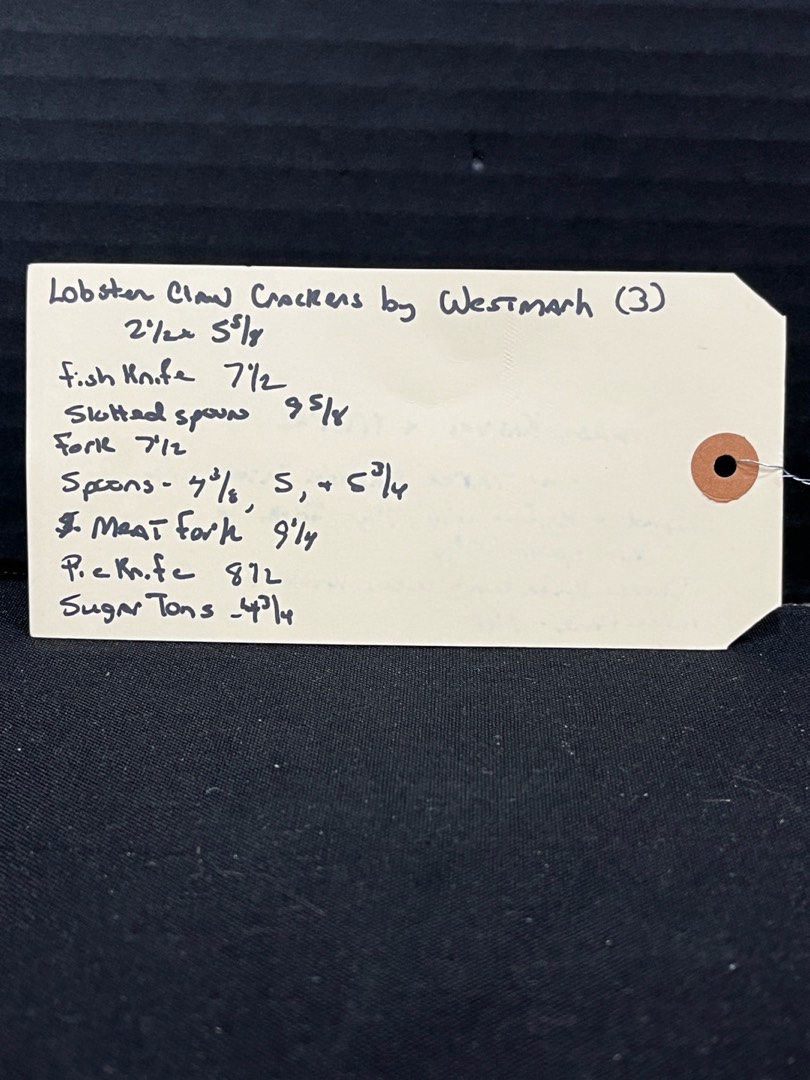 Lobster Claw Crackers by Westmark (3)
2 1/2 x 5 5/8
Fish Knife 7 1/2
Slotted spoon 9 5/8
Fork 7 1/2
Spoons - 4 3/8, 5, + 5 3/4
Meat Fork 9 1/4
Pie Knife 8 1/2
Sugar Tons - 4 3/4